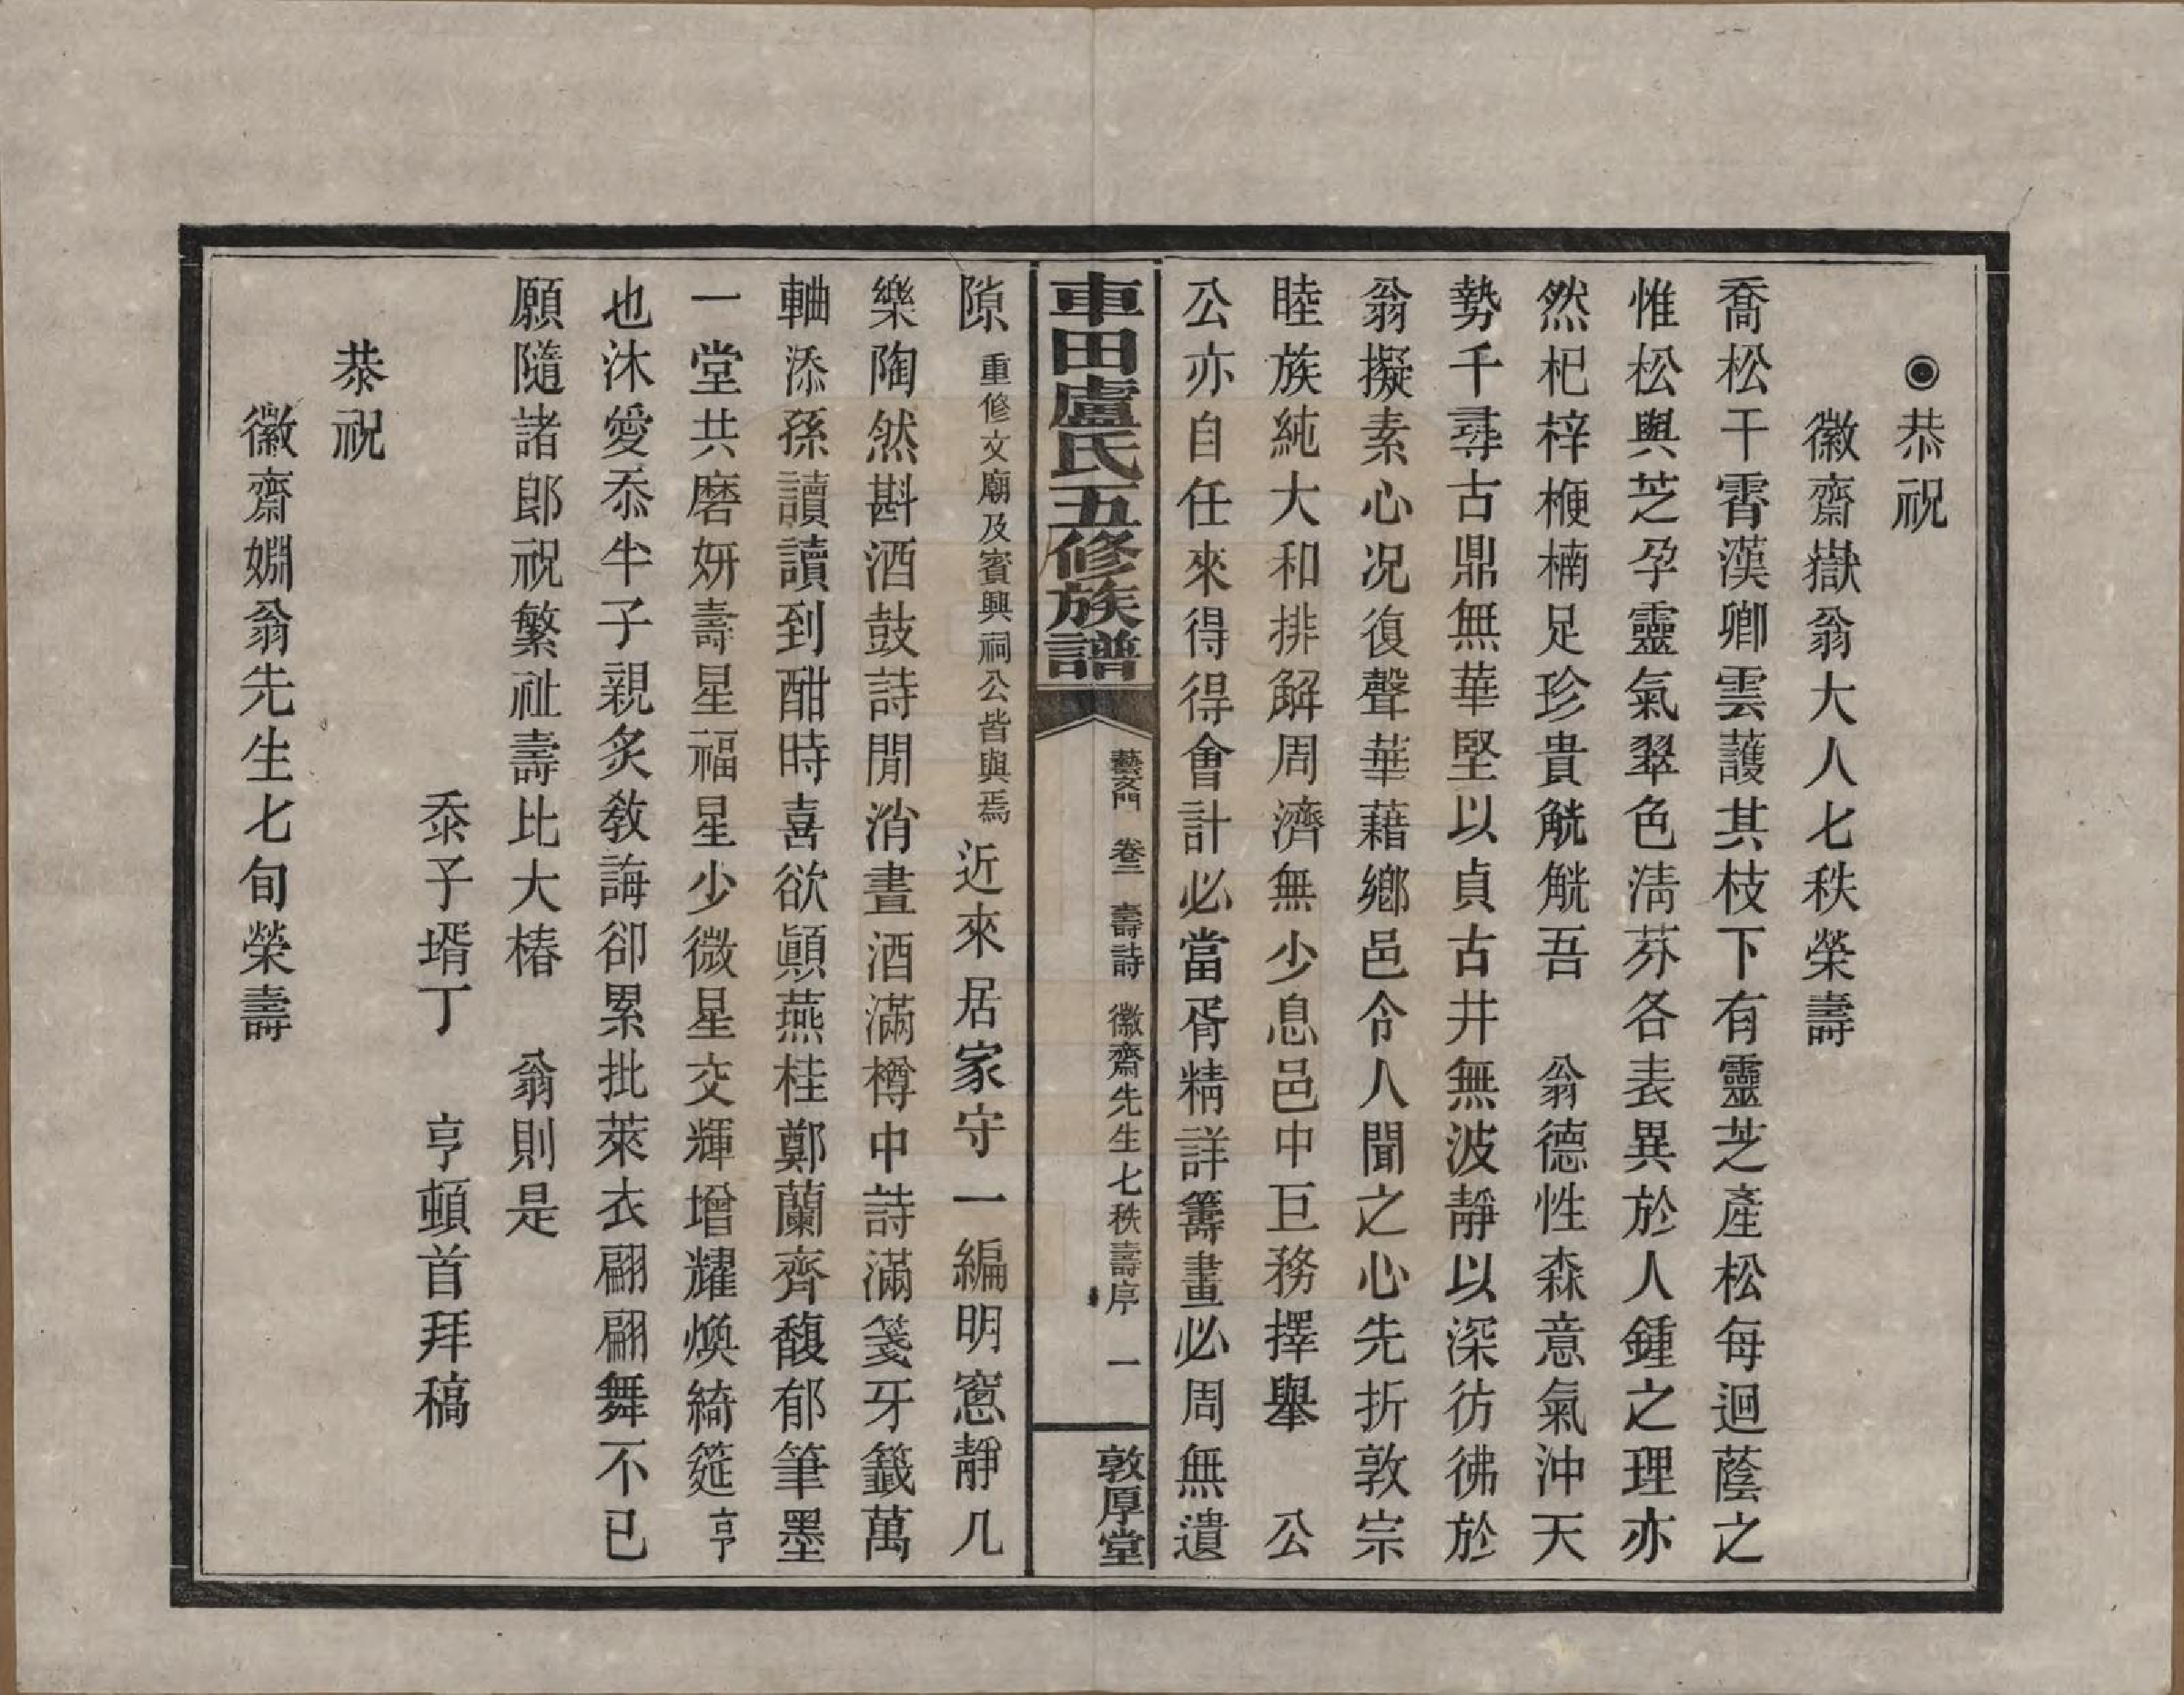 ◉恭祝
徽齋嶽翁大人七秩榮壽
喬松干霄漢卿雲護其枝下有靈芝產松每迴蔭之
惟松與芝孕靈氣翠色淸芬各表異於人鍾之理亦
然杞梓楩楠足珍貴觥觥吾　翁德性森意氣沖天
勢千尋古鼎無華堅以貞古井無波靜以深彷彿於
翁擬素心况復聲華藉鄉邑令人聞之心先折敦宗
睦族純大和排解周濟無少息邑中巨務擇舉　公
公亦自任來得得會計必當胥精詳籌畫必周無遺
車田盧氏五修族譜　藝文門　卷三　壽詩　徽齋先生七秩壽序　一　敦厚堂
隙重修文廟及賓興祠公皆與焉近來居家守一編明窻靜几
樂陶然斟酒鼓詩閒消晝酒滿樽中詩滿箋牙籤萬
軸添孫讀讀到酣時喜欲顚燕桂鄭蘭齊馥郁筆墨
一堂共磨妍壽星福星少微星交輝增耀煥綺筵亨
也沐愛忝半子親炙敎誨卻累批萊衣翩翩舞不已
願隨諸郎祝繁祉壽比大椿　翁則是
忝子壻丁　亨頓首拜稿
恭祝
徽齋婣翁先生七旬榮壽